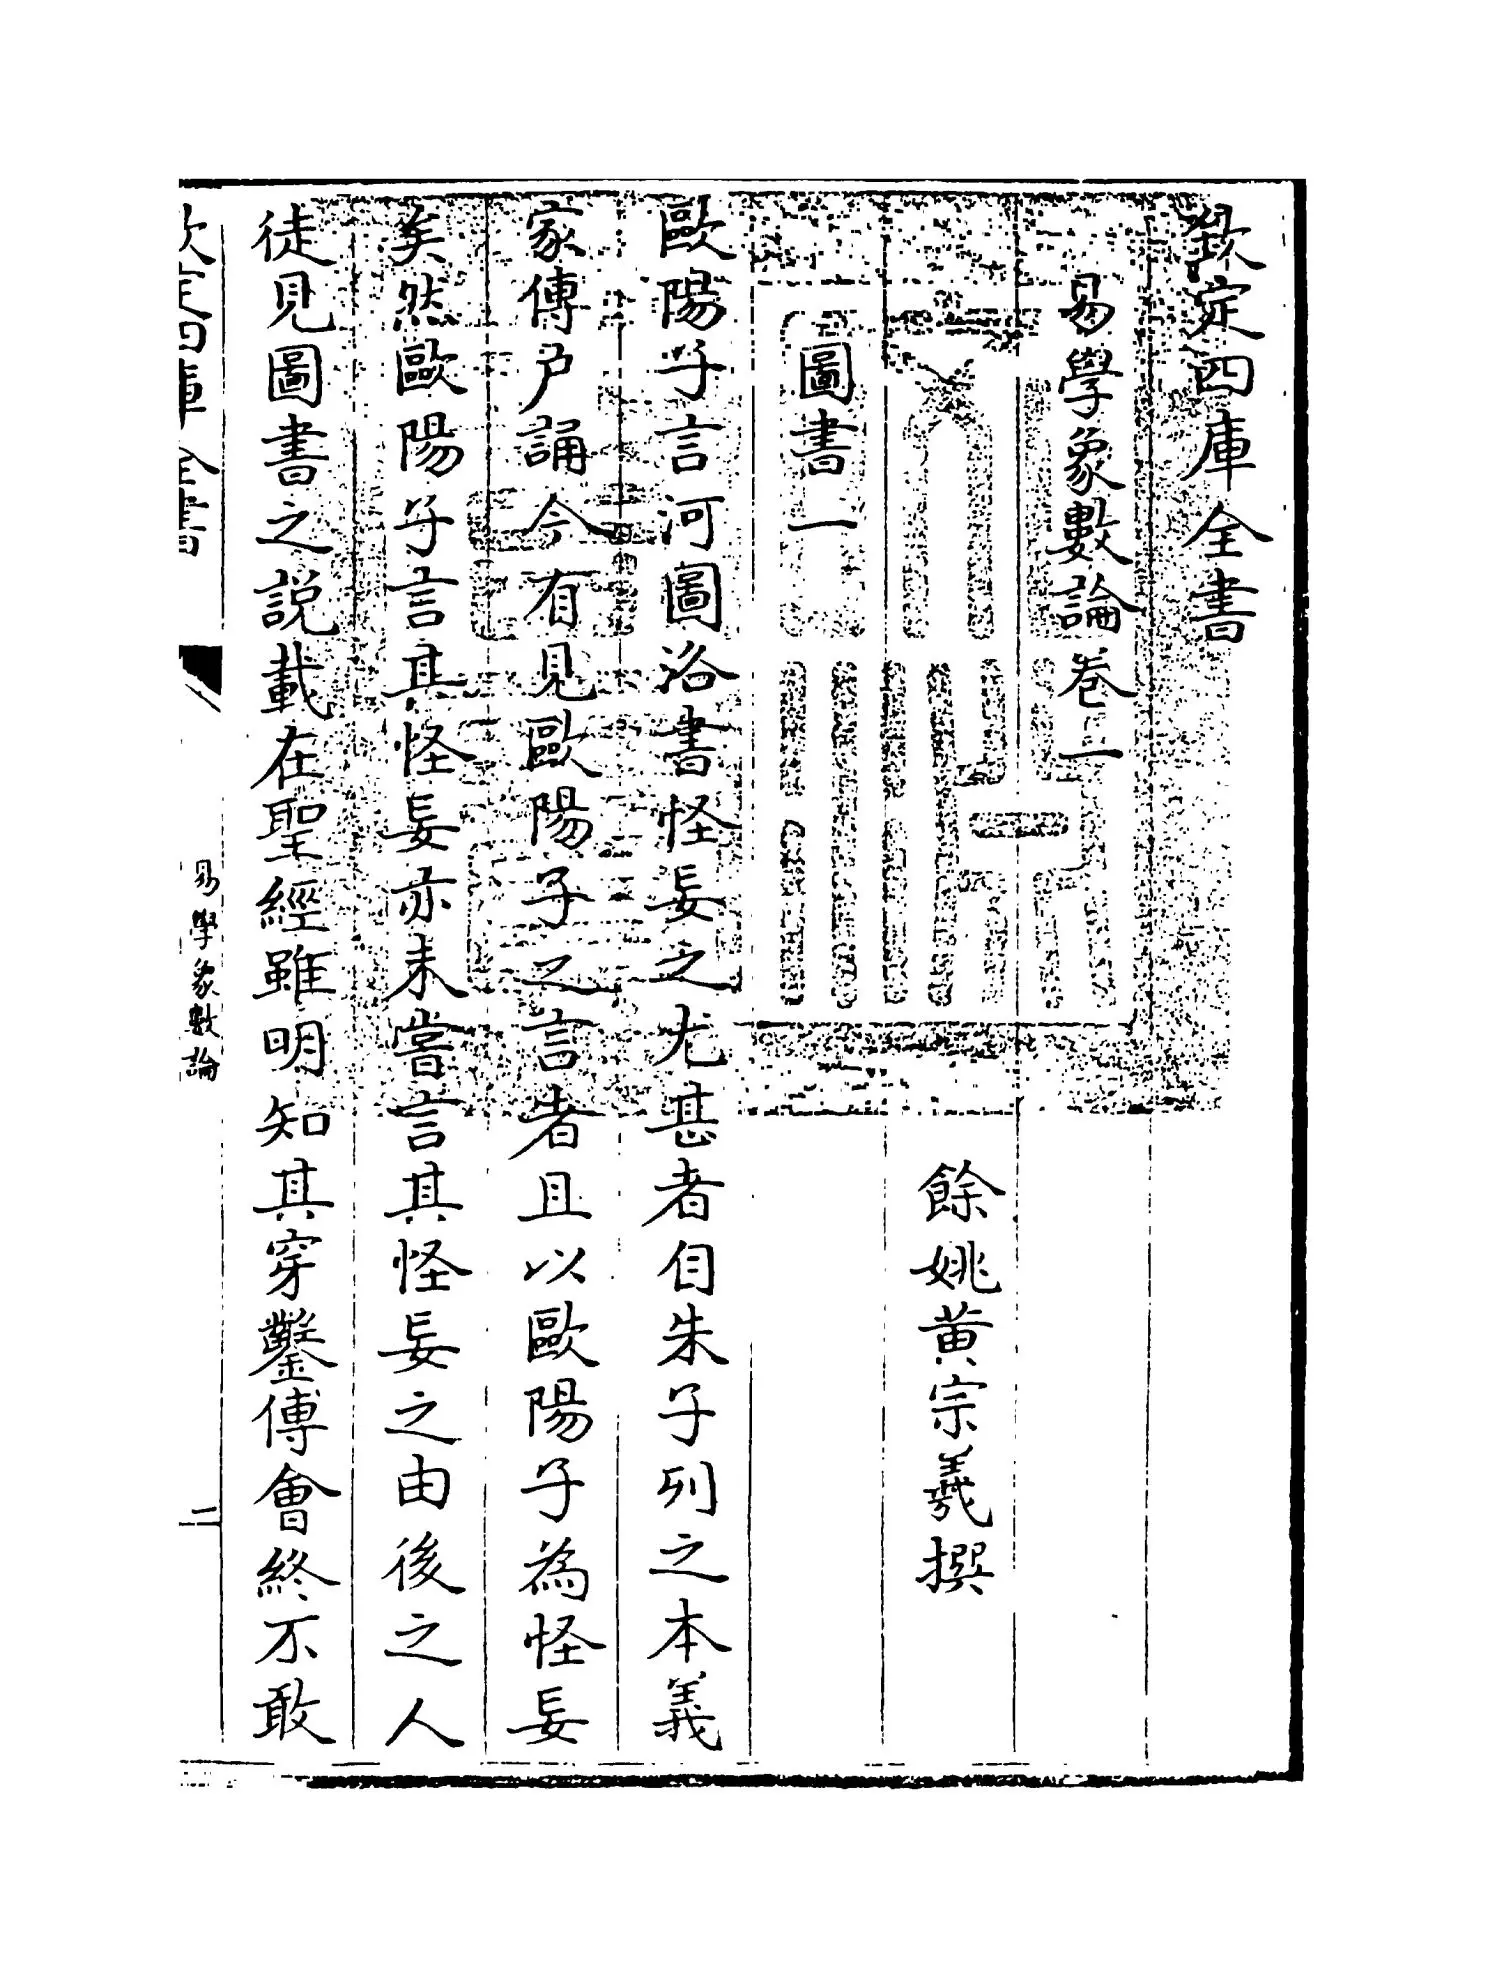 欽定四庫全書
易學象數論卷一
餘姚黃宗羲撰
圖書一
歐陽子言河圖洛書怪妄之尤甚者自朱子列之本義
家傳户誦今有見歐陽子之言者且以歐陽子為怪妄
矣然歐陽子言其怪妄亦未嘗言其怪妄之由後之人
徒見圖書之説載在聖經雖明知其穿鑿傅會終不敢
欽定四庫全書
易學象數論